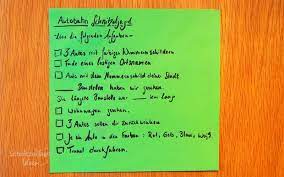 Autobahn Schnitzeljagd
Löse die folgenden Aufgaben-
3 Autos mit farbigen Nummernschildern
Finde einen lustigen Ortsnamen
Auto mit dem Nummernschild deiner Stadt.
Baustellen haben wir gesehen.
Die längste Baustelle war km lang
Wohnwagen gesehen.
3 Autos sollen dir zurückwinken
Je ein Auto in den Farben: Rot, Gelb, Blau, Weiß.
Tunnel durchfahren.